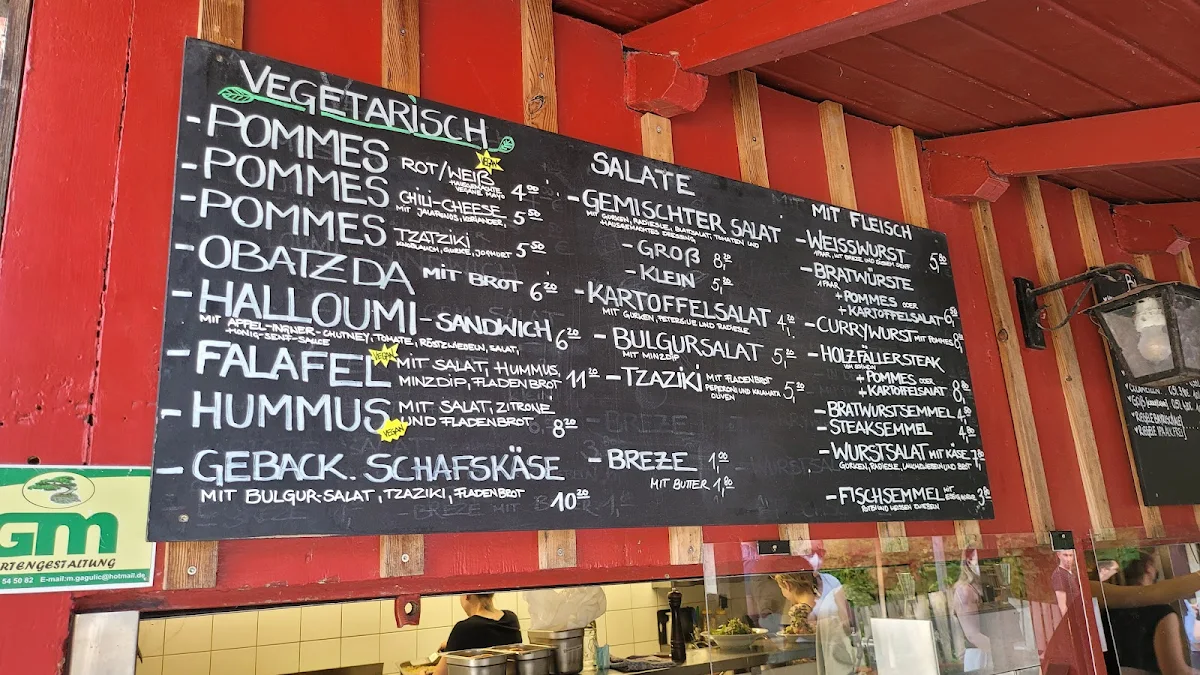 VEGETARİSCH
- POMMES ROT/WEIß VEGAN 4,00
HAUSGEMACHTE
VEGANE MAYO
- POMMES CHILI-CHEESE 5,50
MIT JALAPENOS, KORIANDER,
- POMMES TZATZIKI 5,50
KNOBLAUCH, GURKE, JOGHURT
- OBATZDA MIT BROT 6,20
- HALLOUMI-SANDWICH 6,20
MIT APFEL-INGWER-CHUTNEY, TOMATE, RÖSTZWIEBELN, SALAT,
HONIG-SENF-SAUCE
- FALAFEL VEGAN MIT SALAT, HUMMUS,
MINZDIP, FLADENBROT 11,20
- HUMMUS VEGAN MIT SALAT, ZITRONE
UND FLADENBROT 8,20
- GEBACK. SCHAFSKÄSE
MIT BULGUR-SALAT, TZAZIKI, FLADENBROT 10,20
SALATE
- GEMISCHTER SALAT
MIT GURKEN, RADIESLE, BLATTSALAT, TOMATEN UND
HAUSGEMACHTES DRESSING
- GROß 8,
- KLEIN 5,
- KARTOFFELSALAT 4,
MIT GURKEN, PETERSILIE UND RADIESLE
- BULGURSALAT 5,
MIT MINZDIP
- TZAZIKI MIT FLADENBROT
PEPERONI UND KALAMATA
OLIVEN 5,20
- BREZE 1,00
MIT BUTTER 1,80
MIT FLEISCH
- WEISSWURST 5,
1 PAAR, MIT BREZE UND SÜSSEM SENF
- BRATWÜRSTE
1 PAAR
+ POMMES ODER
+ KARTOFFELSALAT 6,
- CURRYWURST MIT POMMES 8,
- HOLZFÄLLERSTEAK
VOM SCHWEIN
+ POMMES ODER
+ KARTOFFELSALAT 8,
- BRATWURSTSEMMEL 4,
- STEAKSEMMEL 4,
- WURSTSALAT MIT KÄSE 7,
GURKEN, RADIESLE, LAUCHZWIEBELN UND BROT
- FISCHSEMMEL MIT ESSIGGURKE 3,
ROTEN UND WEISSEN ZWIEBELN
GM
RTENGESTALTUNG
54 50 82 E-mail:m.gagulic@hotmail.de